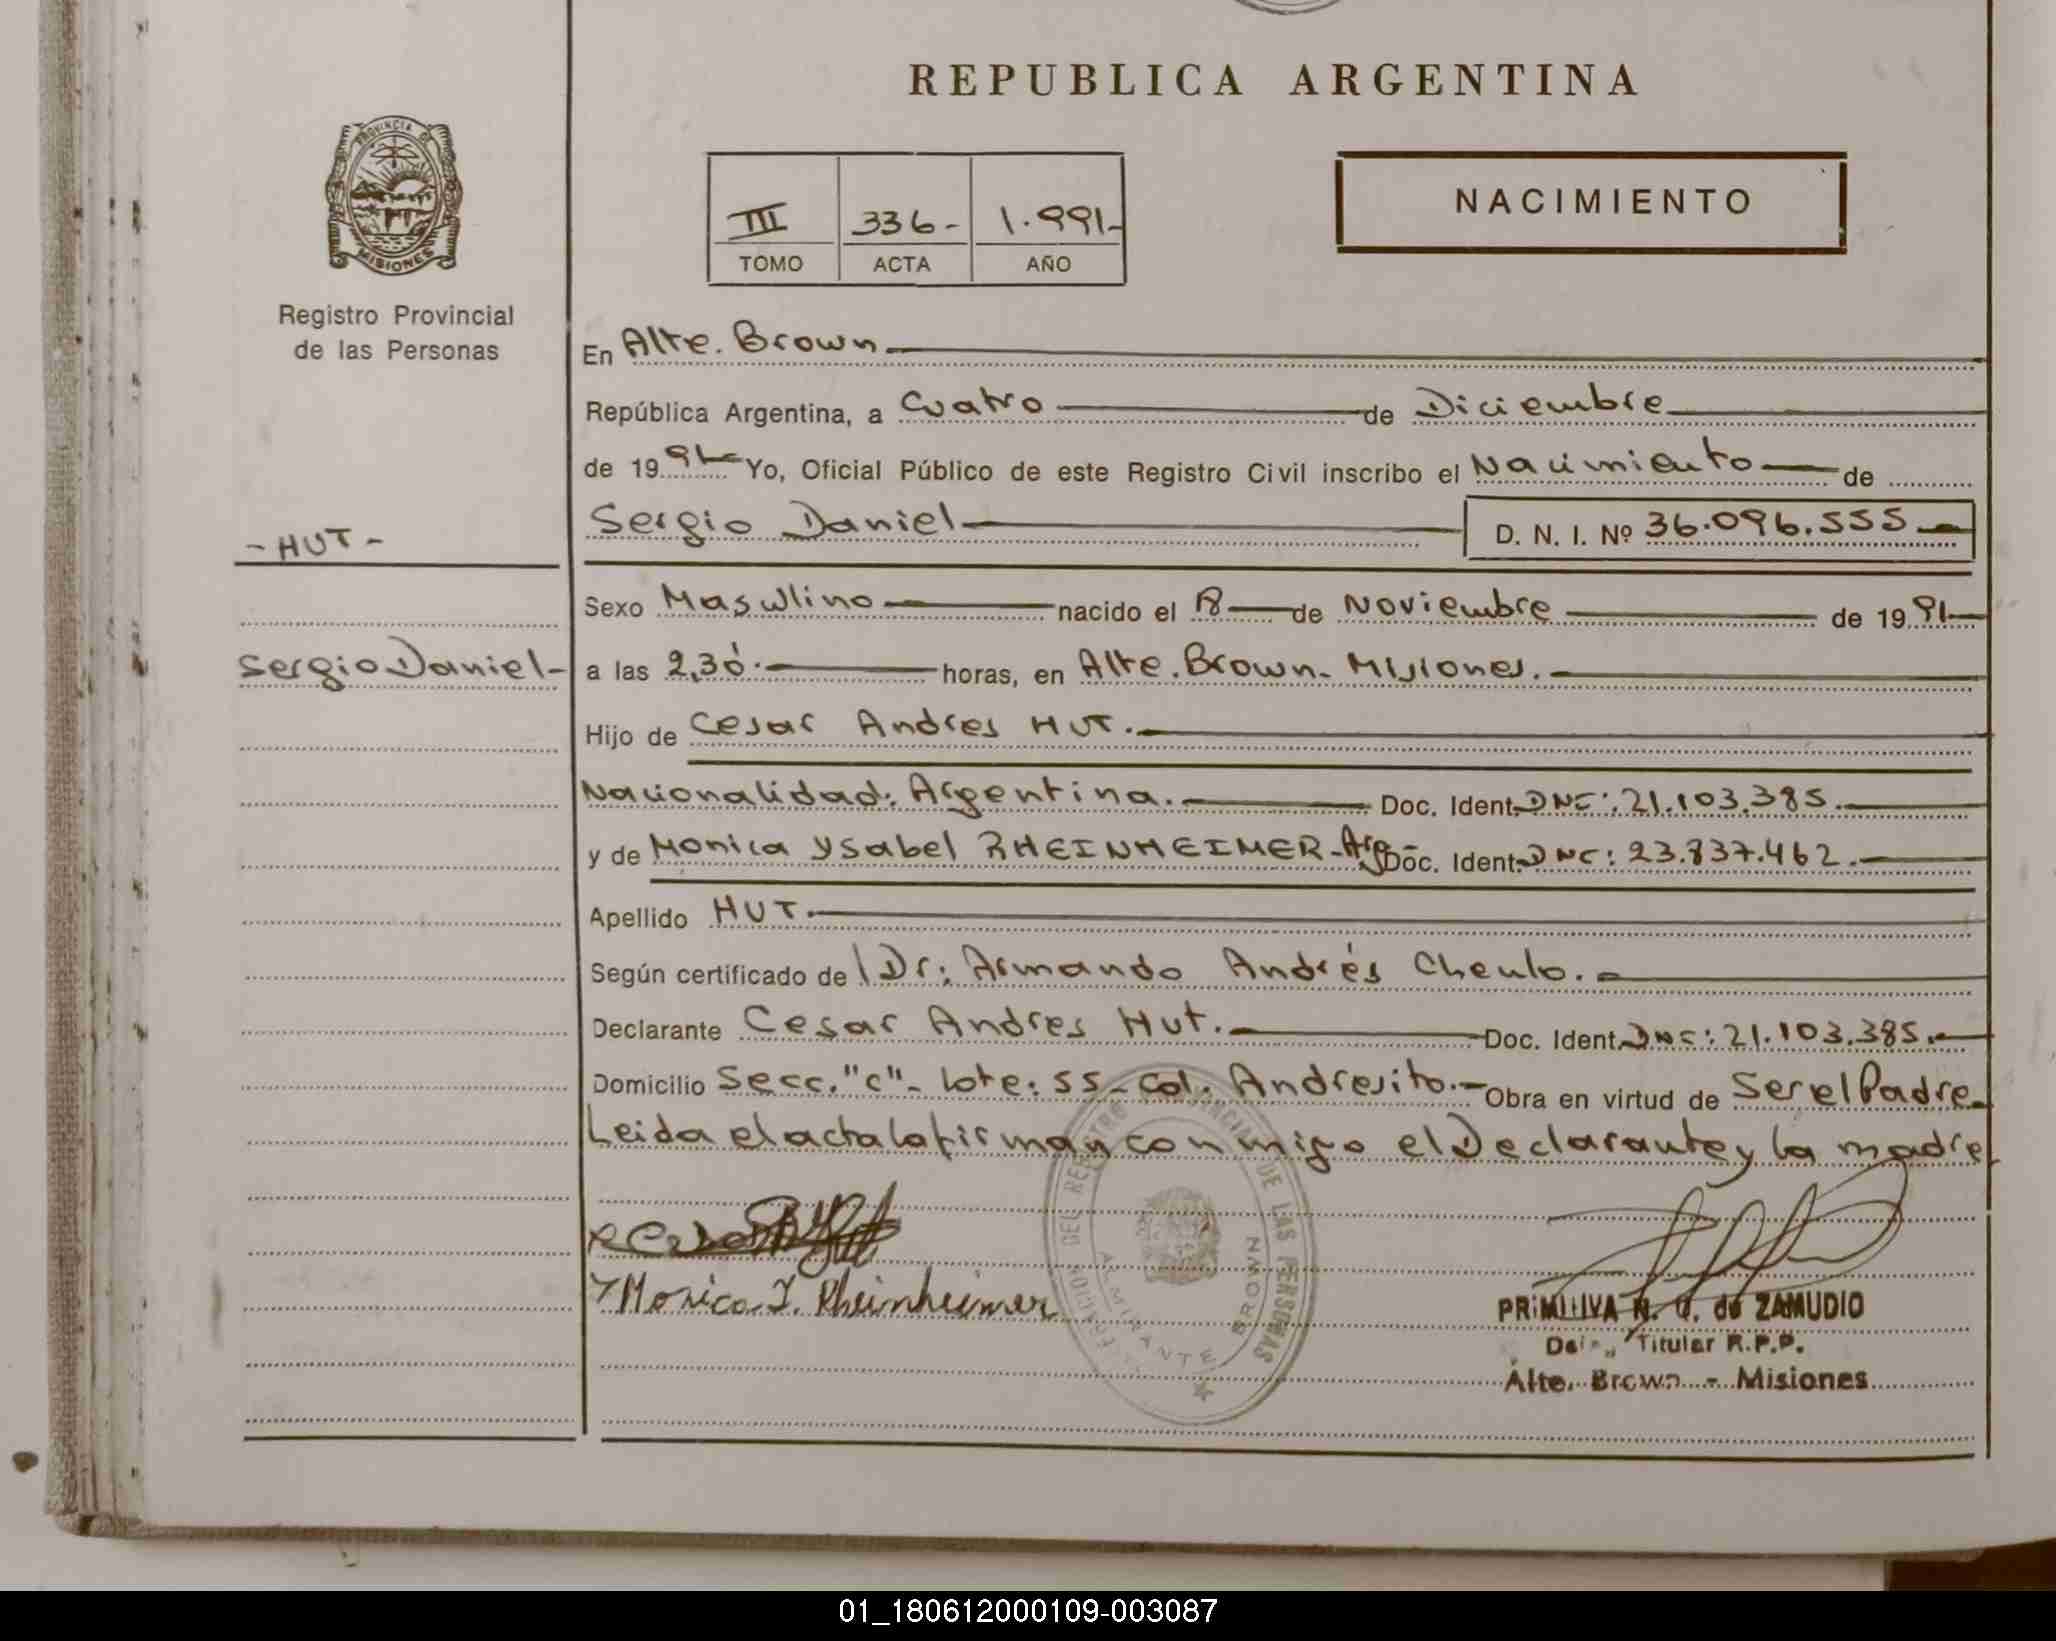 REPUBLICA ARGENTINA
PROVINCIA DE
MISIONES
Registro Provincial
de las Personas
III 336- 1.991-
TOMO ACTA AÑO
NACIMIENTO
En Alte. Brown
República Argentina, a Cuatro de Diciembre
de 19 91 Yo, Oficial Público de este Registro Civil inscribo el Nacimiento de
Sergio Daniel D. N. I. Nº 36.096.555
-HUT-
Sexo Masculino nacido el 18 de Noviembre de 19 91
Sergio Daniel-
a las 2,30. horas, en Alte. Brown- Misiones.
Hijo de Cesar Andres HUT.
Nacionalidad: Argentina. Doc. Ident. DNI: 21.103.385.
y de Monica Ysabel RHEINHEIMER-Arg- Doc. Ident. DNI: 23.837.462.
Apellido HUT.
Según certificado de Dr: Armando Andrés
Declarante Cesar Andres Hut. Doc. Ident. DNI: 21.103.385.
Domicilio Secc. "C"- lote: 55- Col. Andresito.- Obra en virtud de Ser el Padre-
Leida el acta la firman conmigo el Declarante y la madre
Monica I. Rheinheimer
DEL REGISTRO PROVINCIAL DE LAS PERSONAS
ALMIRANTE BROWN
PRIMITIVA N. G. de ZAMUDIO
Titular R.P.P.
Alte. Brown - Misiones
01_180612000109-003087